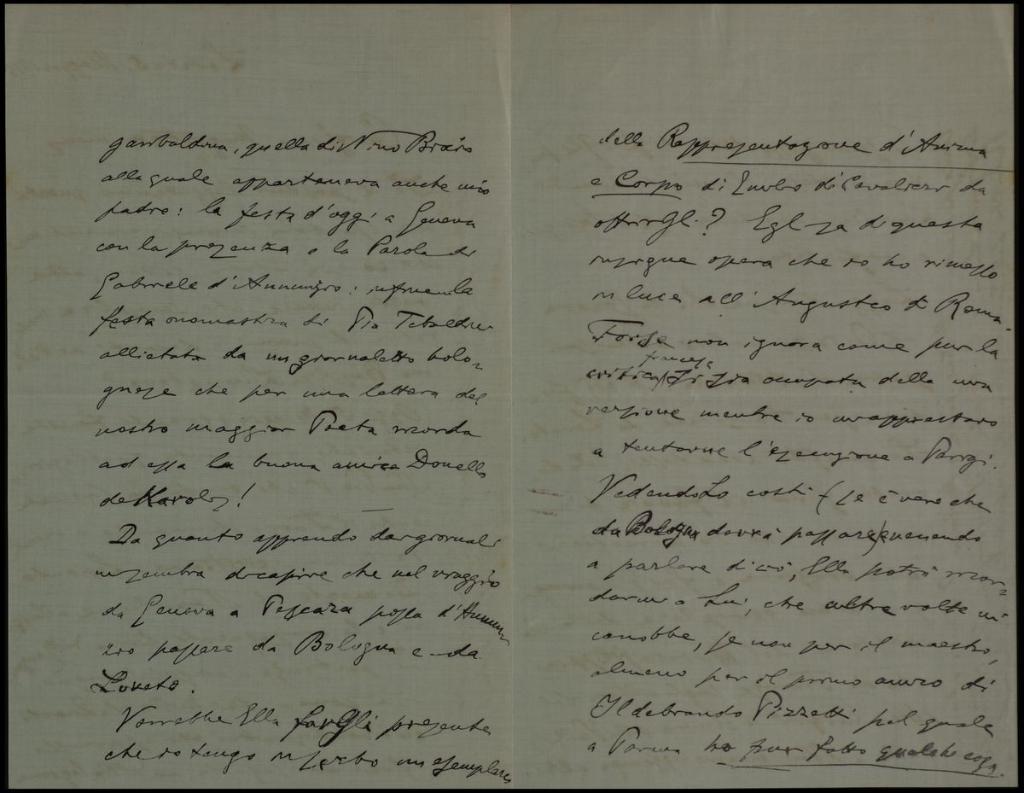 garibaldina, quella di Nino Bixio
alla quale apparteneva anche mio
padre: la festa d'oggi a Genova
con la presenza e la Parola di
Gabriele d'Annunzio: infine la
festa onomastica di Pio Tebaldini
allietata da un giornaletto bolo-
gnese che per una lettera del
nostro maggior Poeta ricorda
ad essa la buona amica Donella
de Karolis!
Da quanto apprendo dai giornali
mi sembra di capire che nel viaggio
da Genova a Pescara possa d'Annun
zio passare da Bologna e da
Loreto.
Vorrebbe Ella farGli presente
che io tengo in serbo un esemplare
della Rappresentazione d'Anima
e Corpo di Emilio di Cavalieri da
offrirGli? Egli sa di questa
insigne opera che io ho rimesso
in luce all'Augusteo di Roma.
Forse non ignora come pur la
critica francese si sia occupata della mia
versione mentre io mi apprestavo
a tentarne l'esecuzione a Parigi.
VedendoLo costì (se è vero che
da Bologna dovrà passare) e venendo
a parlare di ciò, Ella potrà ricor-
darmi a Lui, che altre volte mi
conobbe, se non per il maestro,
almeno per il primo amico di
Ildebrando Pizzetti pel quale
a Parma ho pur fatto qualche cosa.